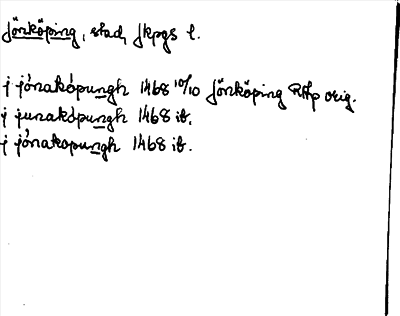 Jönköping, stad, Jkpgs l.
j jónakópungh 1468 10/10 Jönköping RAp orig.
j junakópungh 1468 ib.
j jónakopungh 1468 ib.